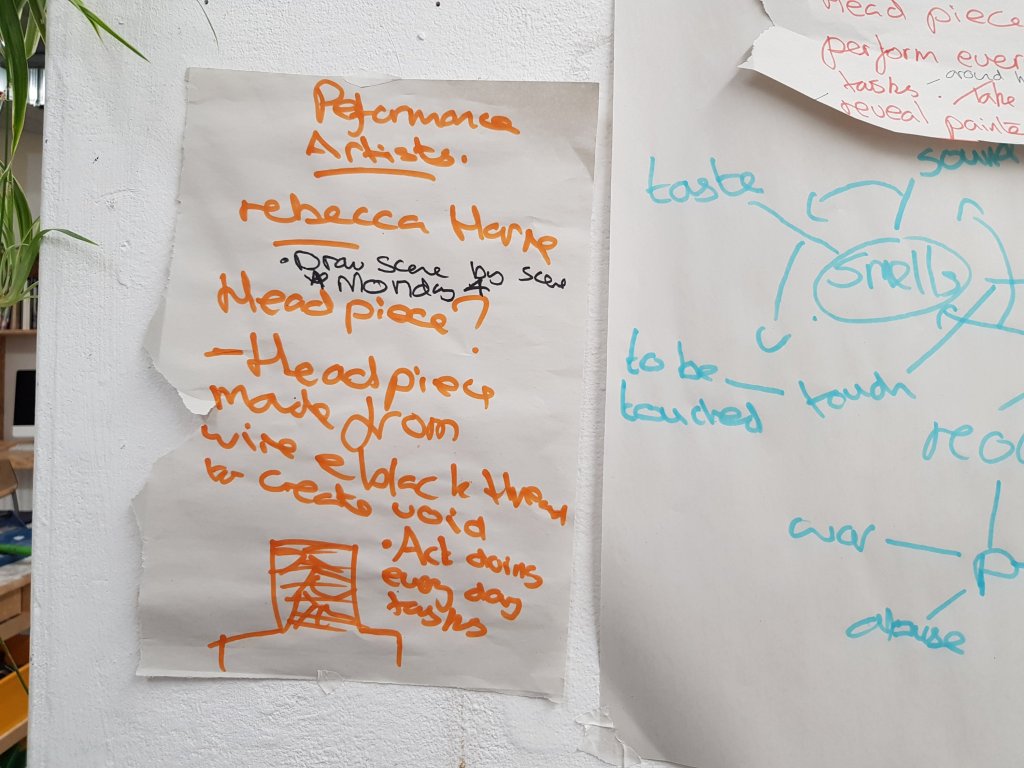 Peformance
Artists.
rebecca Horne
• Draw scene by scene
* Monday *
Headpiece?
- Headpiece
made from
wire & black thread
to create void
• Act doing
every day
tasks
Head piece
perform ever
around h
tasks. take
reveal painte
sound
taste
smells
to be
touched
touch
war
abuse